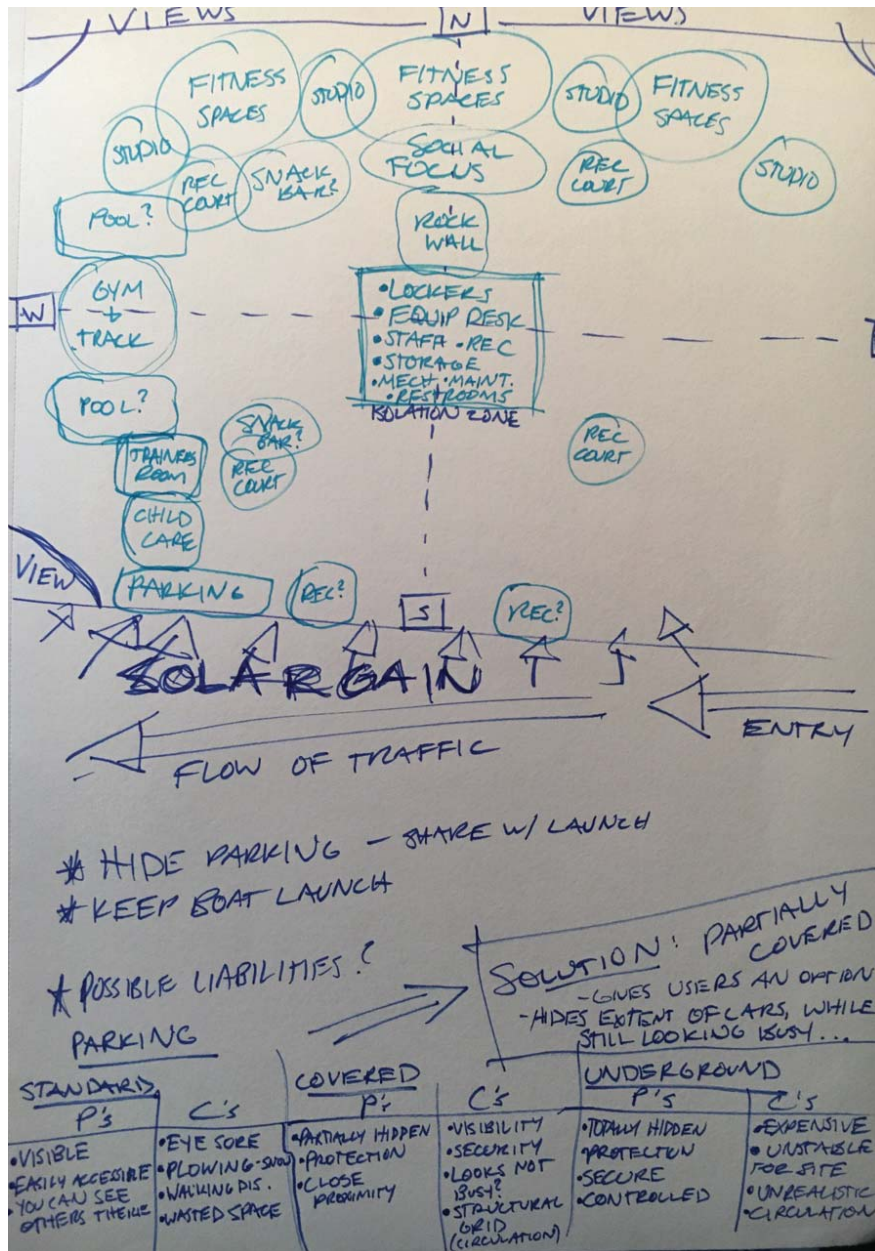 VIEWS
N
VIEWS
FITNESS
SPACES
STUDIO
FITNESS
SPACES
STUDIO
FITNESS
SPACES
STUDIO
REC
COURT
SNACK
BAR?
SOCIAL
FOCUS
REC
COURT
STUDIO
POOL?
ROCK
WALL
W
GYM
+
TRACK
•LOCKERS
•EQUIP DESK
•STAFF •REC
•STORAGE
•MECH •MAINT.
•RESTROOMS
ISOLATION ZONE
POOL?
SNACK
BAR?
REC
COURT
REC
COURT
TRAINERS
ROOM
CHILD
CARE
VIEW
PARKING
REC?
S
REC?
SOLAR GAIN
ENTRY
FLOW OF TRAFFIC
* HIDE PARKING - SHARE W/ LAUNCH
* KEEP BOAT LAUNCH
* POSSIBLE LIABILITIES?
SOLUTION: PARTIALLY
COVERED
-GIVES USERS AN OPTION
-HIDES EXTENT OF CARS, WHILE
STILL LOOKING BUSY...
PARKING
STANDARD
P's
•VISIBLE
•EASILY ACCESSIBLE
•YOU CAN SEE
OTHERS THERE
C's
•EYE SORE
•PLOWING-SNOW
•WALKING DIS.
•WASTED SPACE
COVERED
P's
•PARTIALLY HIDDEN
•PROTECTION
•CLOSE
PROXIMITY
C's
•VISIBILITY
•SECURITY
•LOOKS NOT
BUSY?
•STRUCTURAL
GRID
(CIRCULATION)
UNDERGROUND
P's
•TOTALLY HIDDEN
•PROTECTION
•SECURE
•CONTROLLED
C's
•EXPENSIVE
•UNSTABLE
FOR SITE
•UNREALISTIC
•CIRCULATION